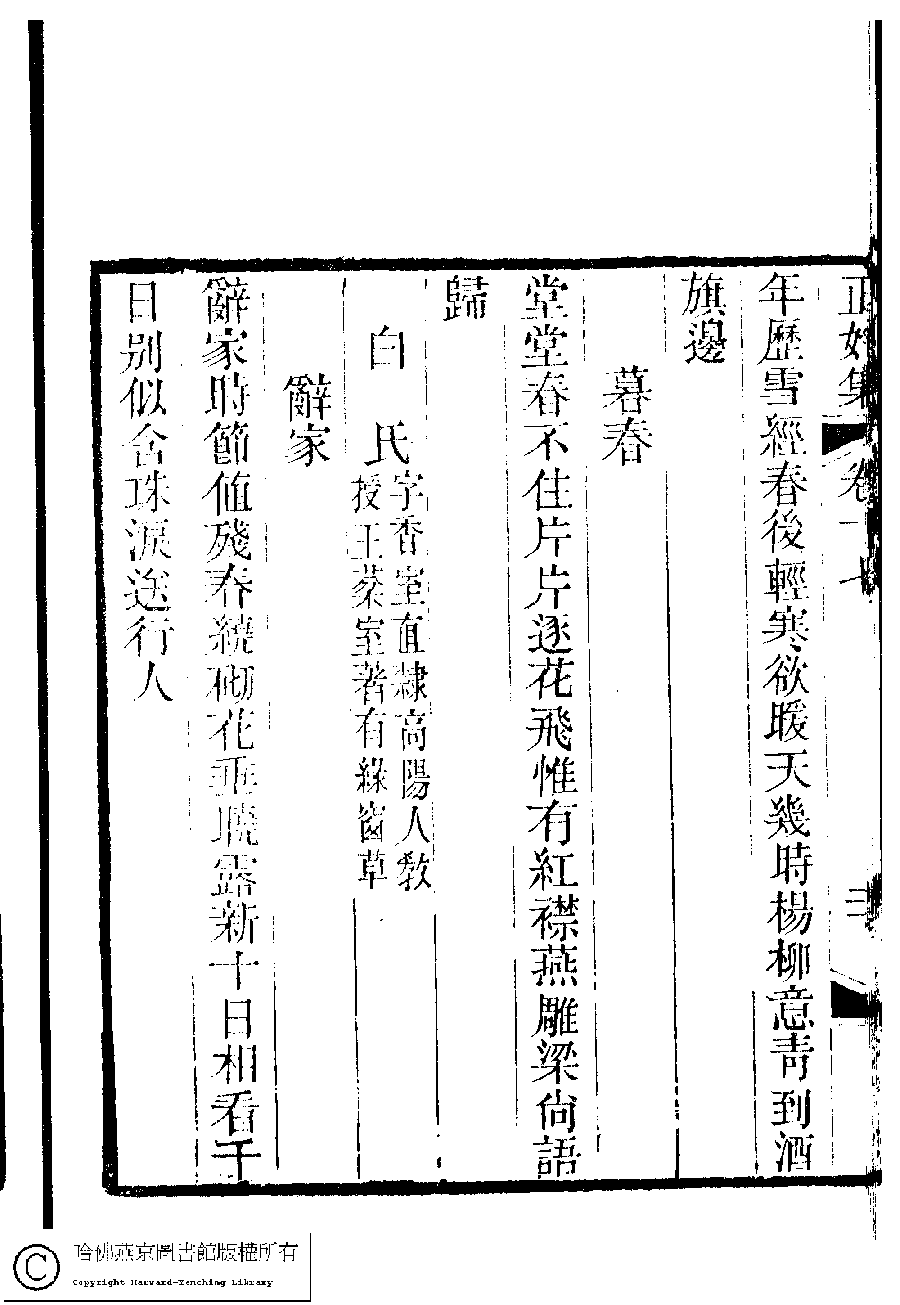 正始集 卷十七 二
年歷雪經春後輕寒欲暖天幾時楊柳意青到酒
旗邊
暮春
堂堂春不住片片逐花飛惟有紅襟燕雕梁尙語
歸
白 氏 字香室直隸高陽人敎
授王蒸室著有綠窗草
辭家
辭家時節値殘春繞砌花垂曉露新十日相看千
日别似含珠淚送行人
哈佛燕京圖書館版權所有
Copyright Harvard-Yenching Library